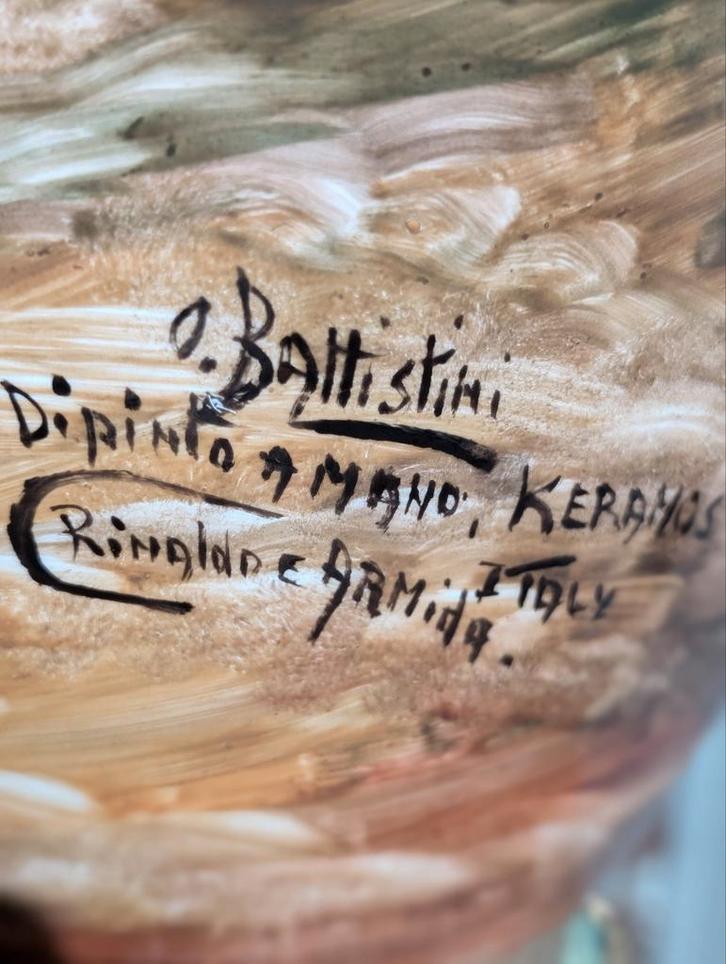 O. Battistini
Dipinto A MANO, KERAMOS
Rinaldo e ARMida. ITALY